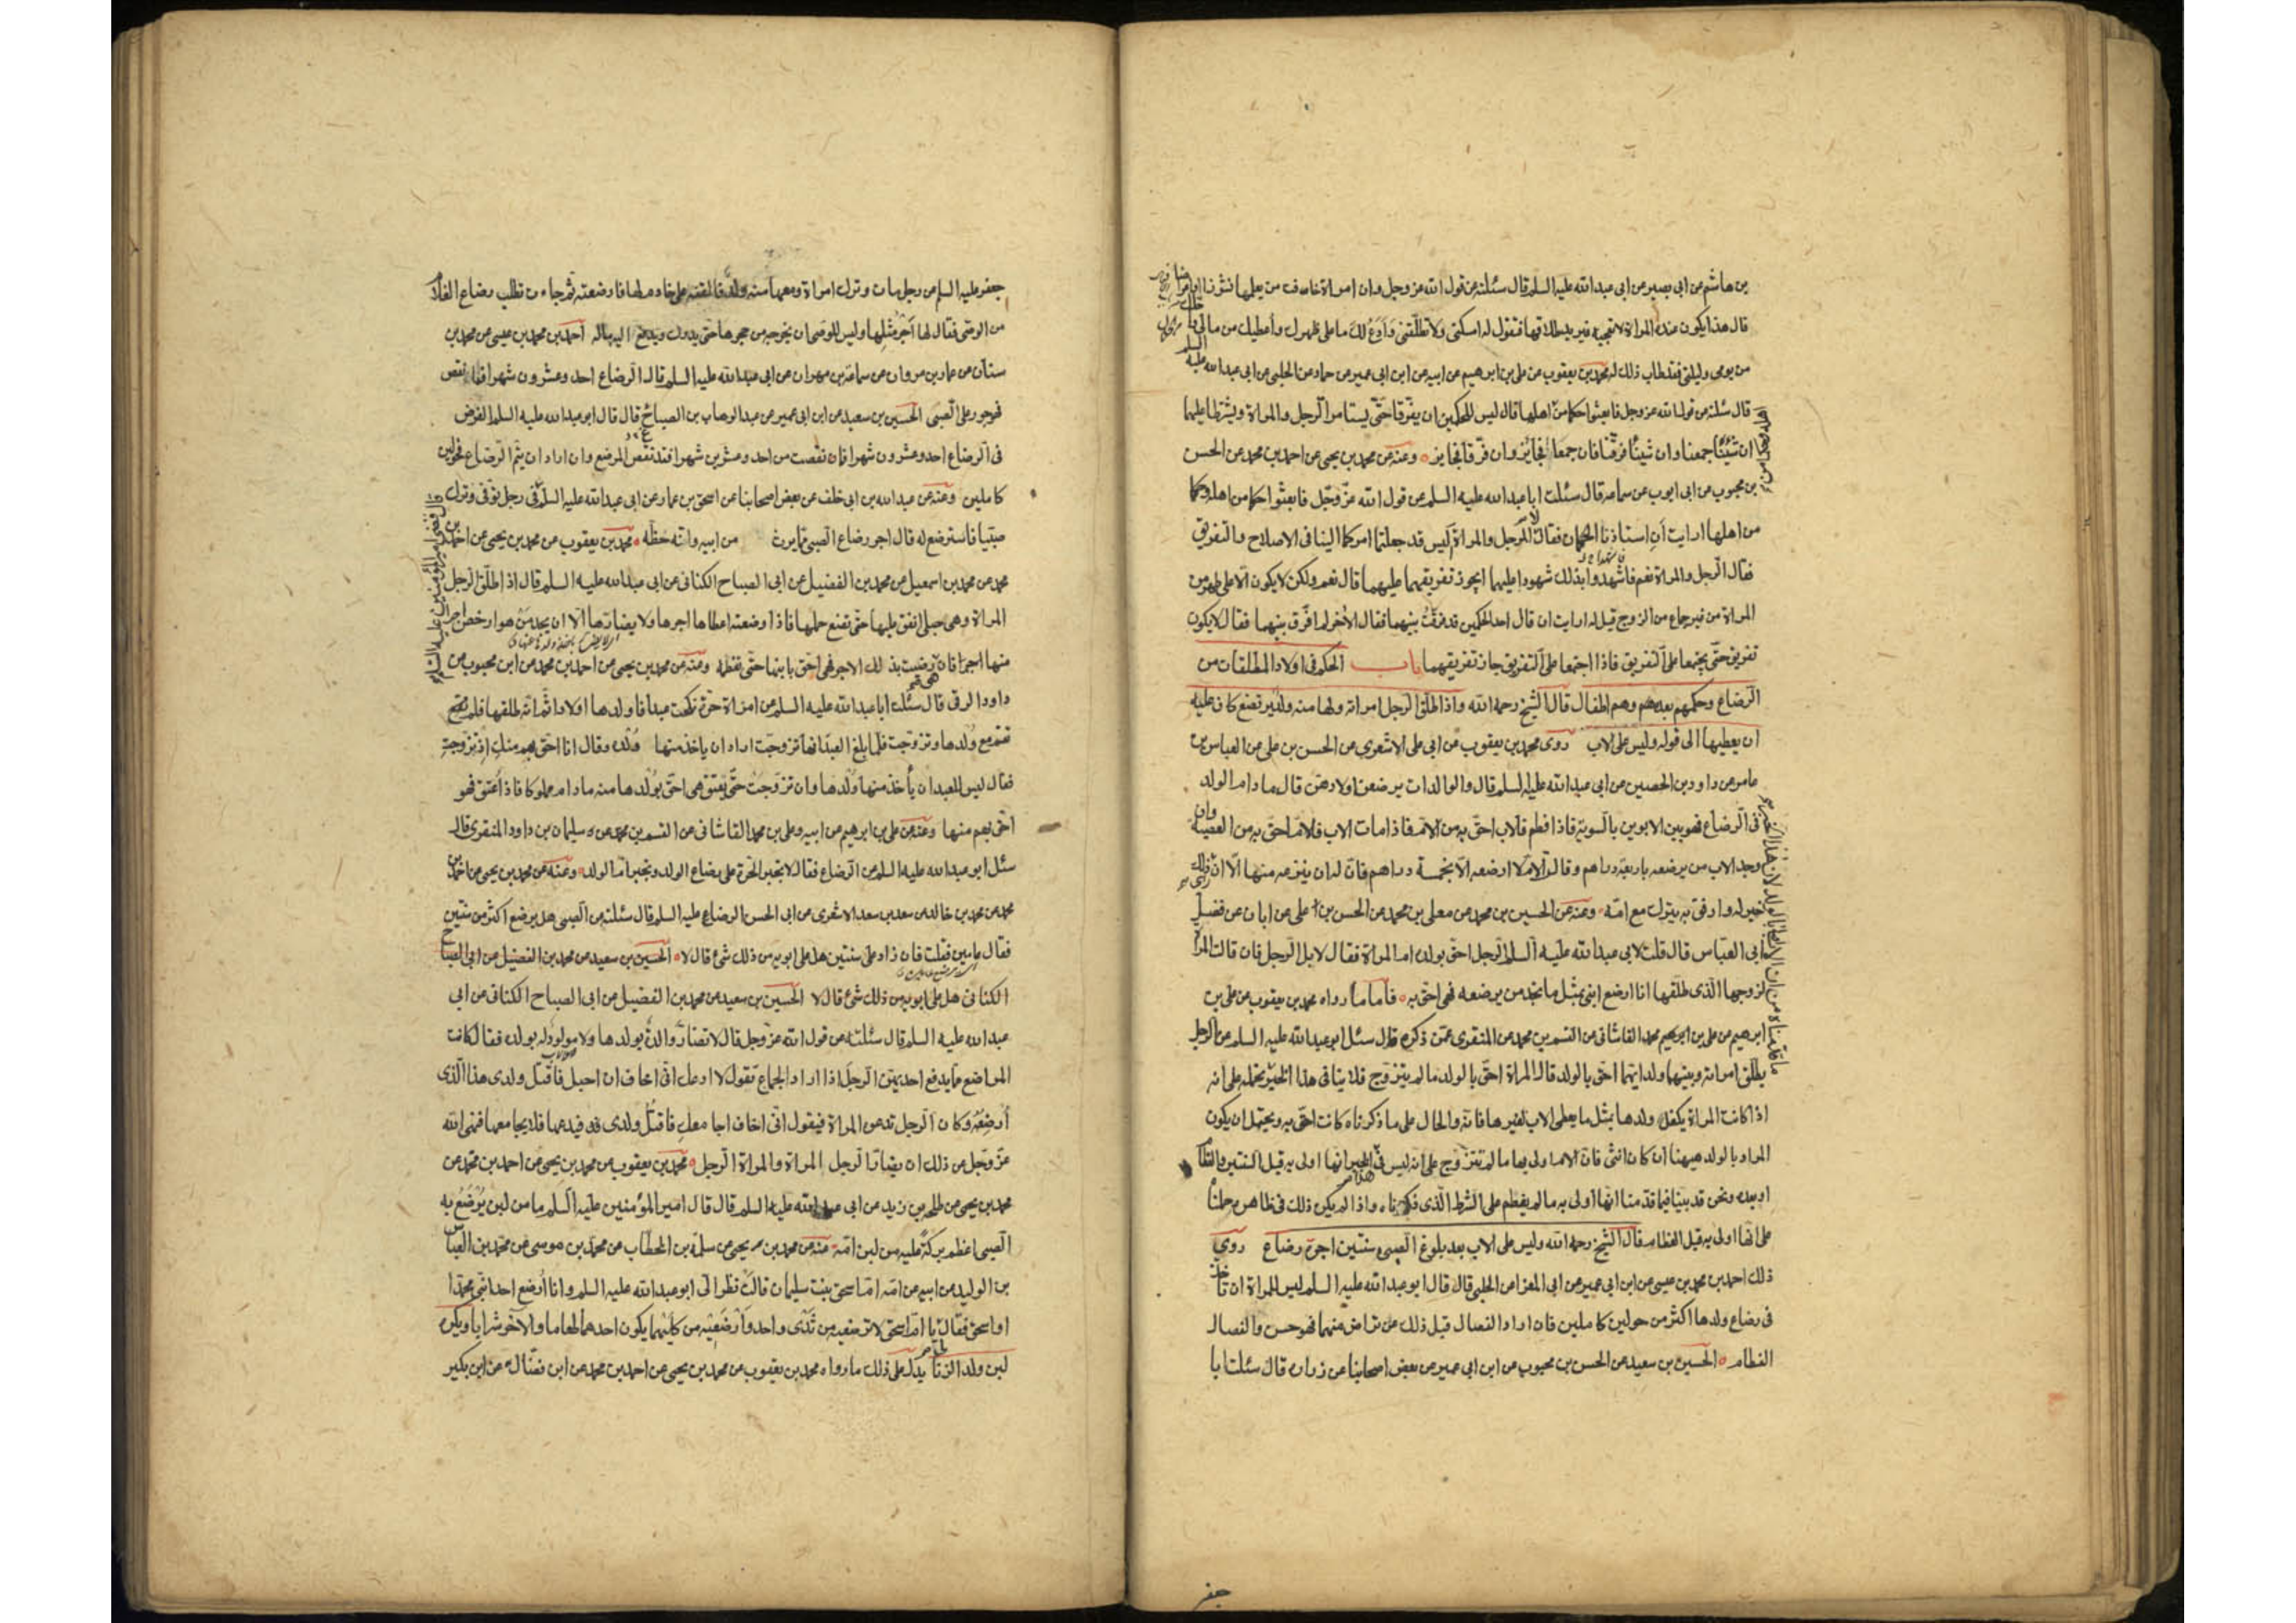 بن هاشم عن ابى بصير عن ابى عبدالله عليه السلم قال سئلته عن قول الله عز وجل وان امراة خافت من بعلها نشوزا او اعراضا
قال هذا يكون عنده المراة لا تعجبه فيريد طلاقها فتقول له امسكنى ولا تطلقنى وَاَدَعُ لك ما على ظهرك وأعطيك من مالى واحللك
من يومى وليلتى فقد طاب ذلك له محمد بن يعقوب عن على بن ابرهيم عن ابيه عن ابن ابى عمير عن حماد عن الحلبى عن ابى عبدالله عليه السلم
قال سئلته عن قول الله عز وجل فابعثوا حكما من اهلها قال ليس للحكمين ان يفرقا حتّى يستامرا الرجل والمراة ويشترطا عليهما
ان شئنا جمعنا وان شيئنا فرقنا فان جمعا فجائز وان فرقا فجايز وعنه عن محمد بن يحيى عن احمد بن محمد عن الحسن
بن محبوب عن ابى ايوب عن سماعه قال سئلت ابا عبدالله عليه السلم عن قول الله عزّ وجّل فابعثوا حكما من اهله وحكما
من اهلها ارايت أنِ استاذنا الحكمان فقالا للرجل والمراة اليس قد جعلتما امركما الينا فى الاصلاح والتفريق
فقال الرجل والمراة نعم فاشهدوا بذلك شهودا عليهما ايجوز تفريقهما عليهما قال نعم ولكن لا يكون الا على طهر من
المراة من غير جماع من الزوج قيل له ارايت ان قال احد الحكمين قد فرقتُ بينهما فقال الاخر لم افرّق بينهما فقال لا يكون
تفريق حتّى يجتمعا على التفريق فاذا اجتمعا على التفريق جاز تفريقهما باب الحكم فى اولاد المطلقات من
الرضاع وحكمهم بعده وهم اطفال قال الشيخ رحمه الله واذا طلق الرجل امراته ولها منه ولد يرتضع كان عليه
ان يعطيها الى قوله وليس على الاب روى محمد بن يعقوب عن ابى على الاشعرى عن الحسن بن على عن العباس بن
عامر عن داود بن الحصين عن ابى عبدالله عليه السلم قال والوالدات يرضعن اولادهن قال ما دام الولد
فى الرضاع فهو بين الابوين بالسوية فاذا فطم فالاب احق به من الام فاذا مات الاب فالام احق به من العصبة وان
وجد الاب من يرضعه باربعة دراهم وقالت الام لا ارضعه الا بخمسة دراهم فان له ان ينزعه منها الا ان ذلك
خير له وارفق به يترك مع امّه وعنه عن الحسين بن محمد عن معلى بن محمد عن الحسن بن على عن ابان عن فضل
ابى العبّاس قال قلت لابى عبدالله عليه السلم الرجل احق بولده ام المراة فقال لا بل الرجل فان قالت المراة
لزوجها الذى طلّقها انا ارضع ابنى بمثل ما تجد من يرضعه فهى احقّ به فاما ما رواه محمد بن يعقوب عن على بن
ابرهيم عن على بن محمد القاشانى عن القسم بن محمد عن المنقرى عمّن ذكره قال سئل ابو عبدالله عليه السلم عن الرجل
يطلق امراته وبينهما ولد ايهما احق بالولد قال المراة احق بالولد ما لم يتزوج فلا ينافى هذا الخبر نحمله على انه
اذا كانت المراة يكفل ولدها بمثل ما يعطى الاب لغيرها فانه والحال على ما ذكرناه كانت احق به ويحتمل ان يكون
المراد بالولد ههنا ان كان انثى فان الام اولى بها ما لم تتزوج على انه ليس فى الخبر انها اولى به قبل السنتين والفطام
او بعده ونحن قد بينا فيما قدمنا انها اولى به ما لم يفطم على الشرط الذى ذكرناه واذا لم يكن ذلك فى ظاهره حملنا
على انها اولى به قبل الفطام قال الشيخ رحمه الله وليس على الاب بعد بلوغ الصبى سنتين اجرة رضاع روى
ذلك احمد بن محمد بن عيسى عن ابن ابى عمير عن ابى المغرا عن الحلبى قال قال ابو عبدالله عليه السلم ليس للمراة ان تاخذ
فى رضاع ولدها اكثر من حولين كاملين فان ارادا الفصال قبل ذلك عن تراض منهما فهو حسن والفصال
الفطام الحسين بن سعيد عن الحسن بن محبوب عن ابن ابى عمير عن بعض اصحابنا عن زرارة قال سئلت ابا
جعفر
جعفر عليه السلم عن رجل مات وترك امراة ومعها منه ولد فالقته على خادم لها فارضعته ثم جاءت تطلب رضاع الغلام
من الوصى فقال لها اَجْرُ مثلِها وليس للوصى ان يخرجه من حجرها حتى يدرك ويدفع اليه ماله احمد بن محمد بن عيسى عن محمد بن
سنان عن عمار بن مروان عن سماعة بن مهران عن ابى عبدالله عليه السلم قال الرضاع احد وعشرون شهرا فما نقص
فهو جور على الصبى الحسين بن سعيد عن ابن ابى عمير عن عبد الوهاب بن الصباح قال قال ابو عبدالله عليه السلم الفرض
فى الرضاع احد وعشرون شهرا فان نقصت من احد وعشرين شهرا فقد نقص المرضع وان اراد ان يتم الرضاع فحولين
كاملين وعنه عن عبدالله بن ابى خلف عن بعض اصحابنا عن اسحق بن عمار عن ابى عبدالله عليه السلم فى رجل توفى وترك
صبيّا فاسترضع له قال اجر رضاع الصبى مما يرث من ابيه وانه حظّه محمد بن يعقوب عن محمد بن يحيى عن احمد بن
محمد عن محمد بن اسمعيل عن محمد بن الفضيل عن ابى الصباح الكنانى عن ابى عبدالله عليه السلم قال اذا طلق الرجل
المراة وهى حبلى انفق عليها حتى تضع حملها فاذا وضعته اعطاها اجرها ولا يضارها الا ان يجد من هو ارخص اجرا
منها اجرا فان رضيت بذلك الاجر فهى احق بابنها حتى تفطمه وعنه عن محمد بن يحيى عن احمد بن محمد عن ابن محبوب عن
داود الرقى قال سئلت ابا عبدالله عليه السلم عن امراة حرّة نكحت عبدا فاولدها اولادا ثم انه طلقها فلم
تقم مع وُلدها وتزوجت فلما بلغ العبد انها تزوجت اراد ان ياخذ منها وُلده وقال انا احق بهم منكِ اذ تزوجتِ
فقال ليس للعبد ان يأخذ منها وُلدها وان تزوجتْ حتّى يعتق هى احق بوُلدها منه ما دام مملوكا فاذا اُعتق فهو
احق بهم منها وعنه عن على بن ابرهيم عن ابيه وعلى بن محمد القاشانى عن القسم بن محمد عن سليمان بن داود المنقرى قال
سئل ابو عبدالله عليه السلم عن الرضاع فقال لا تجبر الحرة على رضاع الولد وتجبر ام الولد وعنه عن محمد بن يحيى عن احمد بن
محمد عن محمد بن خالد عن سعد بن سعد الاشعرى عن ابى الحسن الرضا عليه السلم قال سئلته عن الصبى هل يرضع اكثر من سنتين
فقال عامين فقلت فان زاد على سنتين هل على ابويه من ذلك شئ قال لا الحسين بن سعيد عن محمد بن الفضيل عن ابى الصباح
الكنانى هل على ابويه من ذلك شئ قال لا الحسين بن سعيد عن محمد بن الفضيل عن ابى الصباح الكنانى عن ابى
عبدالله عليه السلم قال سئلته عن قول الله عز وجل لا تضارّ والدة بولدها ولا مولود له بولده فقال كانت
المراضع مما يدفع احديهن الرجلَ اذا اراد الجماع تقول لا ادعك انى اخاف ان احبل فاقتل ولدى هذا الذى
أرضعه وكان الرجل تدعوه المراة فيقول انى اخاف اجامعكِ فاقتل ولدى فيدعها فلا يجامعها فنهى الله
عزّ وجل عن ذلك ان يضارّ الرجل المراة والمراة الرجل محمد بن يعقوب عن محمد بن يحيى عن احمد بن محمد عن
محمد بن يحيى عن طلحه بن زيد عن ابى عبدالله عليه السلم قال قال امير المؤمنين عليه السلم ما من لبن يُرْضَعُ به
الصبى اعظم بركةً عليه من لبن امّه عنه عن محمد بن يحيى عن سلمة بن الخطاب عن محمد بن موسى عن محمد بن العباس
بن الوليد عن ابيه عن امّه ام اسحق بنت سليمان قالت نظر الىّ ابو عبدالله عليه السلم وانا اُرضع احد ابنىّ محمدا
او اسحق فقال يا ام اسحق لا ترضعيه من ثَدْى واحد وَاَرْضعيْه من كليْهما يكون احدهما طعاما والآخر شرابا ويكره
لبن ولد الزنا يدل على ذلك ما رواه محمد بن يعقوب عن محمد بن يحيى عن احمد بن محمد عن ابن فضّال عن ابن بكير